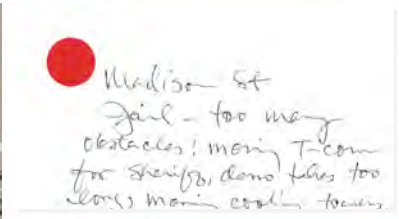 Madison St
Jail - too many
obstacles! moving T-com
for Sheriff, demo takes too
long, moving cooling towers